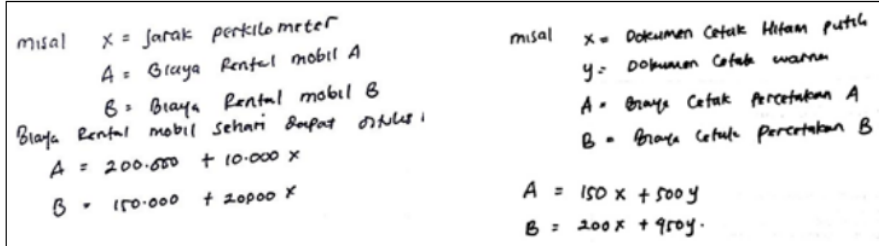 misal x = Jarak perkilometer
A = Biaya Rental mobil A
B = Biaya Rental mobil B
Biaya Rental mobil sehari dapat ditulis :
A = 200.000 + 10.000 x
B = 150.000 + 20000 x
misal x = Dokumen Cetak Hitam putih
y = Dokumen Cetak warna
A = Biaya Cetak Percetakan A
B = Biaya Cetak Percetakan B
A = 150 x + 500 y
B = 200 x + 450 y.